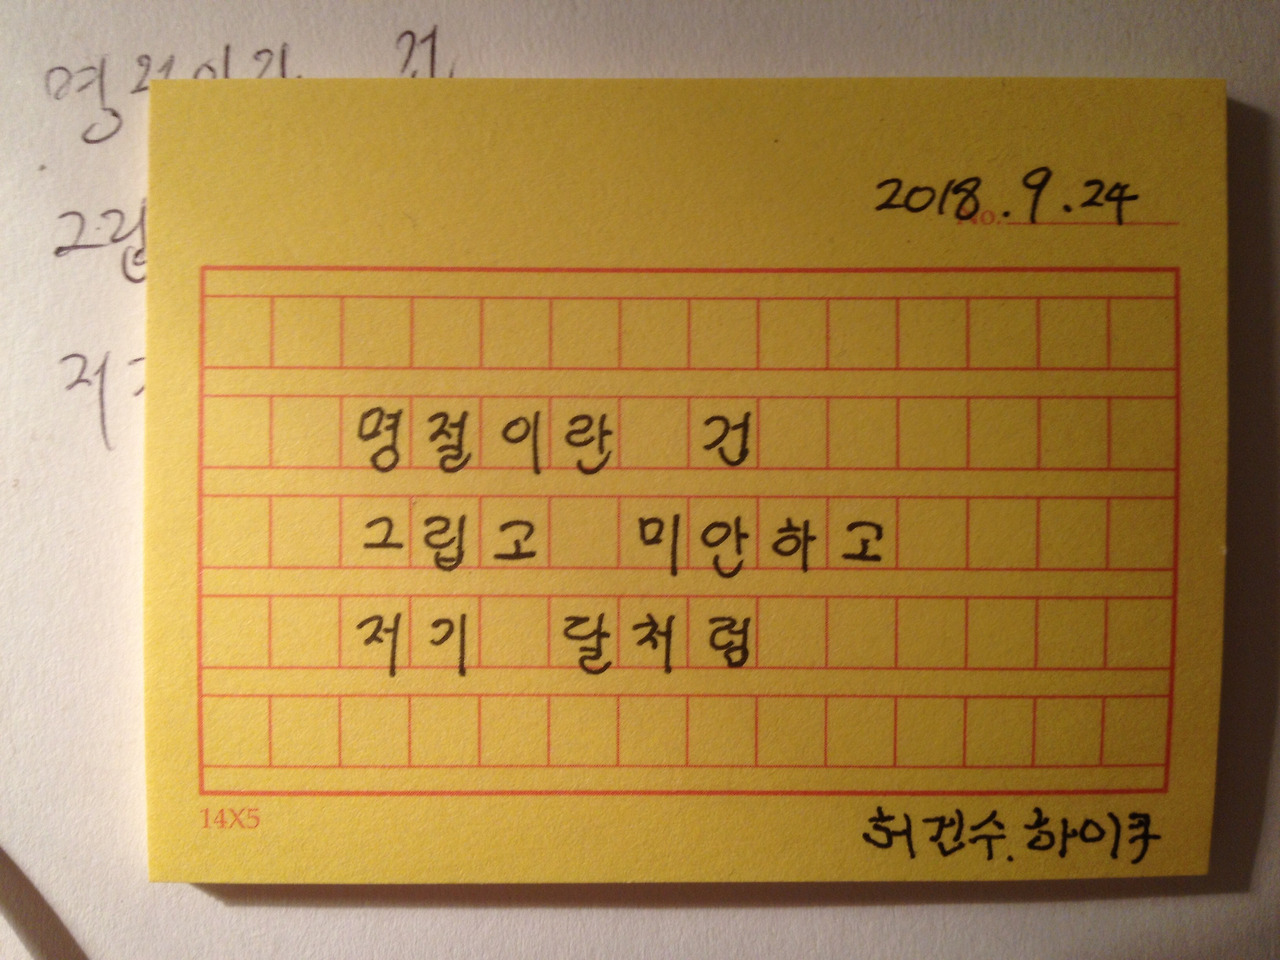 명
그립
저
2018.9.24
No.
명절이란 건
그립고 미안하고
저기 달처럼
14X5
허건수.하이쿠